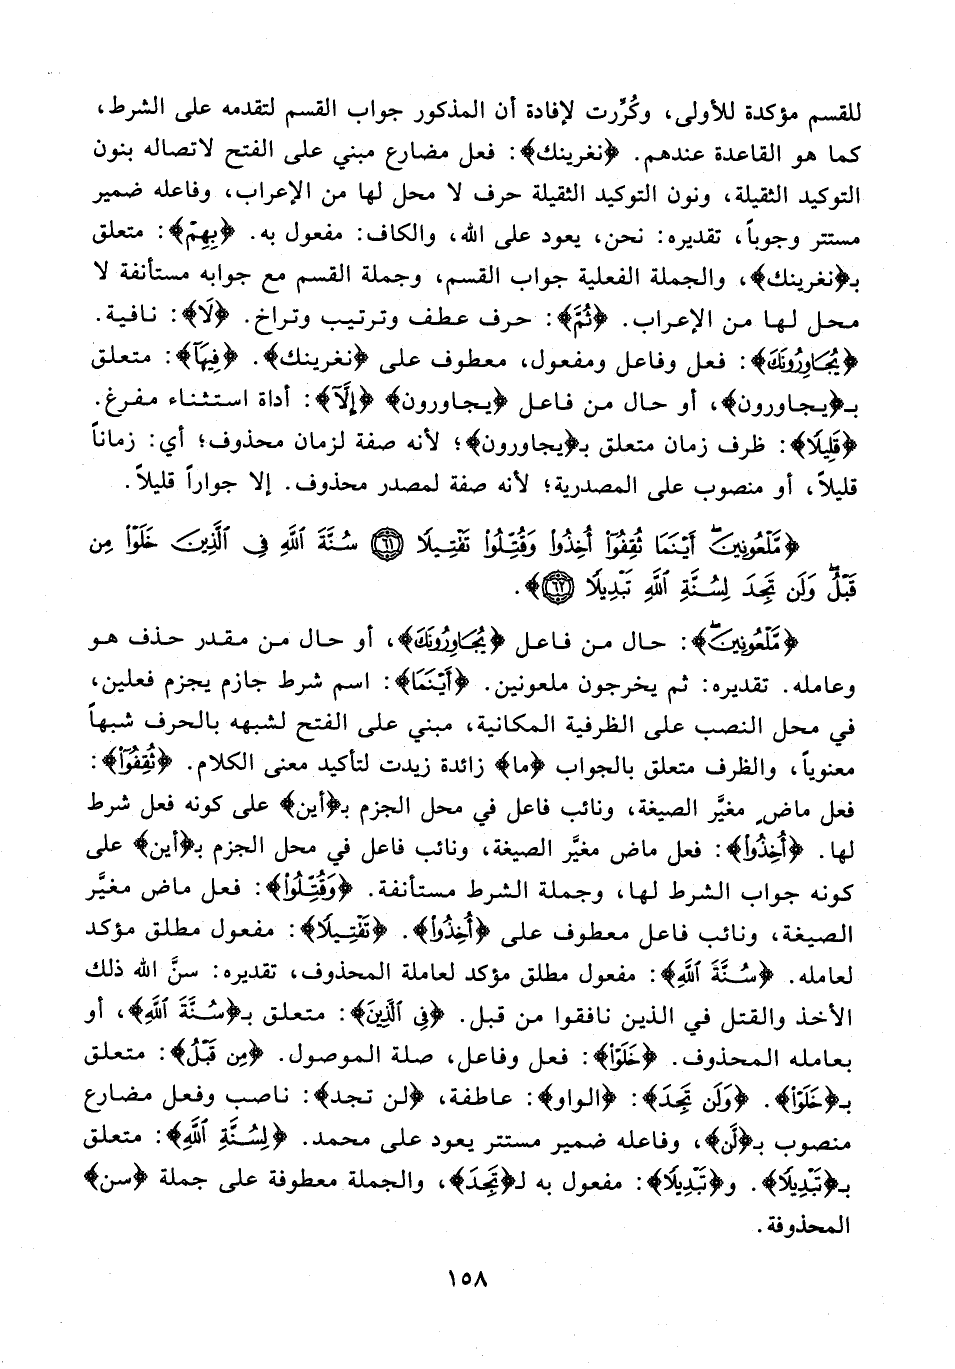 للقسم مؤكدة للأولى، وكُرِّرت لإفادة أن المذكور جواب القسم لتقدمه على الشرط،
كما هو القاعدة عندهم. ﴿نغرينك﴾: فعل مضارع مبني على الفتح لاتصاله بنون
التوكيد الثقيلة، ونون التوكيد الثقيلة حرف لا محل لها من الإعراب، وفاعله ضمير
مستتر وجوباً، تقديره: نحن، يعود على الله، والكاف: مفعول به. ﴿بِهِمْ﴾: متعلق
بـ﴿نغرينك﴾، والجملة الفعلية جواب القسم، وجملة القسم مع جوابه مستأنفة لا
محل لها من الإعراب. ﴿ثُمَّ﴾: حرف عطف وترتيب وتراخ. ﴿لَا﴾: نافية.
﴿يُجَاوِرُونَكَ﴾: فعل وفاعل ومفعول، معطوف على ﴿نغرينك﴾. ﴿فِيهَآ﴾: متعلق
بـ﴿يجاورون﴾، أو حال من فاعل ﴿يجاورون﴾ ﴿إِلَّا﴾: أداة استثناء مفرغ.
﴿قَلِيلًا﴾: ظرف زمان متعلق بـ﴿يجاورون﴾؛ لأنه صفة لزمان محذوف؛ أي: زماناً
قليلاً، أو منصوب على المصدرية؛ لأنه صفة لمصدر محذوف. إلا جواراً قليلاً.
﴿مَّلْعُونِينَۖ أَيْنَمَا ثُقِفُوٓا۟ أُخِذُوا۟ وَقُتِّلُوا۟ تَقْتِيلًا ٦١ سُنَّةَ ٱللَّهِ فِى ٱلَّذِينَ خَلَوْا۟ مِن
قَبْلُۖ وَلَن تَجِدَ لِسُنَّةِ ٱللَّهِ تَبْدِيلًا ٦٢﴾.
﴿مَّلْعُونِينَۖ﴾: حال من فاعل ﴿يُجَاوِرُونَكَ﴾، أو حال من مقدر حذف هو
وعامله. تقديره: ثم يخرجون ملعونين. ﴿أَيْنَمَا﴾: اسم شرط جازم يجزم فعلين،
في محل النصب على الظرفية المكانية، مبني على الفتح لشبهه بالحرف شبهاً
معنوياً، والظرف متعلق بالجواب ﴿ما﴾ زائدة زيدت لتأكيد معنى الكلام. ﴿ثُقِفُوٓا۟﴾:
فعل ماض مغيَّر الصيغة، ونائب فاعل في محل الجزم بـ﴿أين﴾ على كونه فعل شرط
لها. ﴿أُخِذُوا۟﴾: فعل ماض مغيَّر الصيغة، ونائب فاعل في محل الجزم بـ﴿أين﴾ على
كونه جواب الشرط لها، وجملة الشرط مستأنفة. ﴿وَقُتِّلُوا۟﴾: فعل ماض مغيَّر
الصيغة، ونائب فاعل معطوف على ﴿أُخِذُوا۟﴾. ﴿تَقْتِيلًا﴾: مفعول مطلق مؤكد
لعامله. ﴿سُنَّةَ ٱللَّهِ﴾: مفعول مطلق مؤكد لعاملة المحذوف، تقديره: سنَّ الله ذلك
الأخذ والقتل في الذين نافقوا من قبل. ﴿فِى ٱلَّذِينَ﴾: متعلق بـ﴿سُنَّةَ ٱللَّهِ﴾، أو
بعامله المحذوف. ﴿خَلَوْا۟﴾: فعل وفاعل، صلة الموصول. ﴿مِن قَبْلُ﴾: متعلق
بـ﴿خَلَوْا۟﴾. ﴿وَلَن تَجِدَ﴾: ﴿الواو﴾: عاطفة، ﴿لن تجد﴾: ناصب وفعل مضارع
منصوب بـ﴿لَن﴾، وفاعله ضمير مستتر يعود على محمد. ﴿لِسُنَّةِ ٱللَّهِ﴾: متعلق
بـ﴿تَبْدِيلًا﴾. و﴿تَبْدِيلًا﴾: مفعول به لـ﴿تَجِدَ﴾، والجملة معطوفة على جملة ﴿سن﴾
المحذوفة.
١٥٨